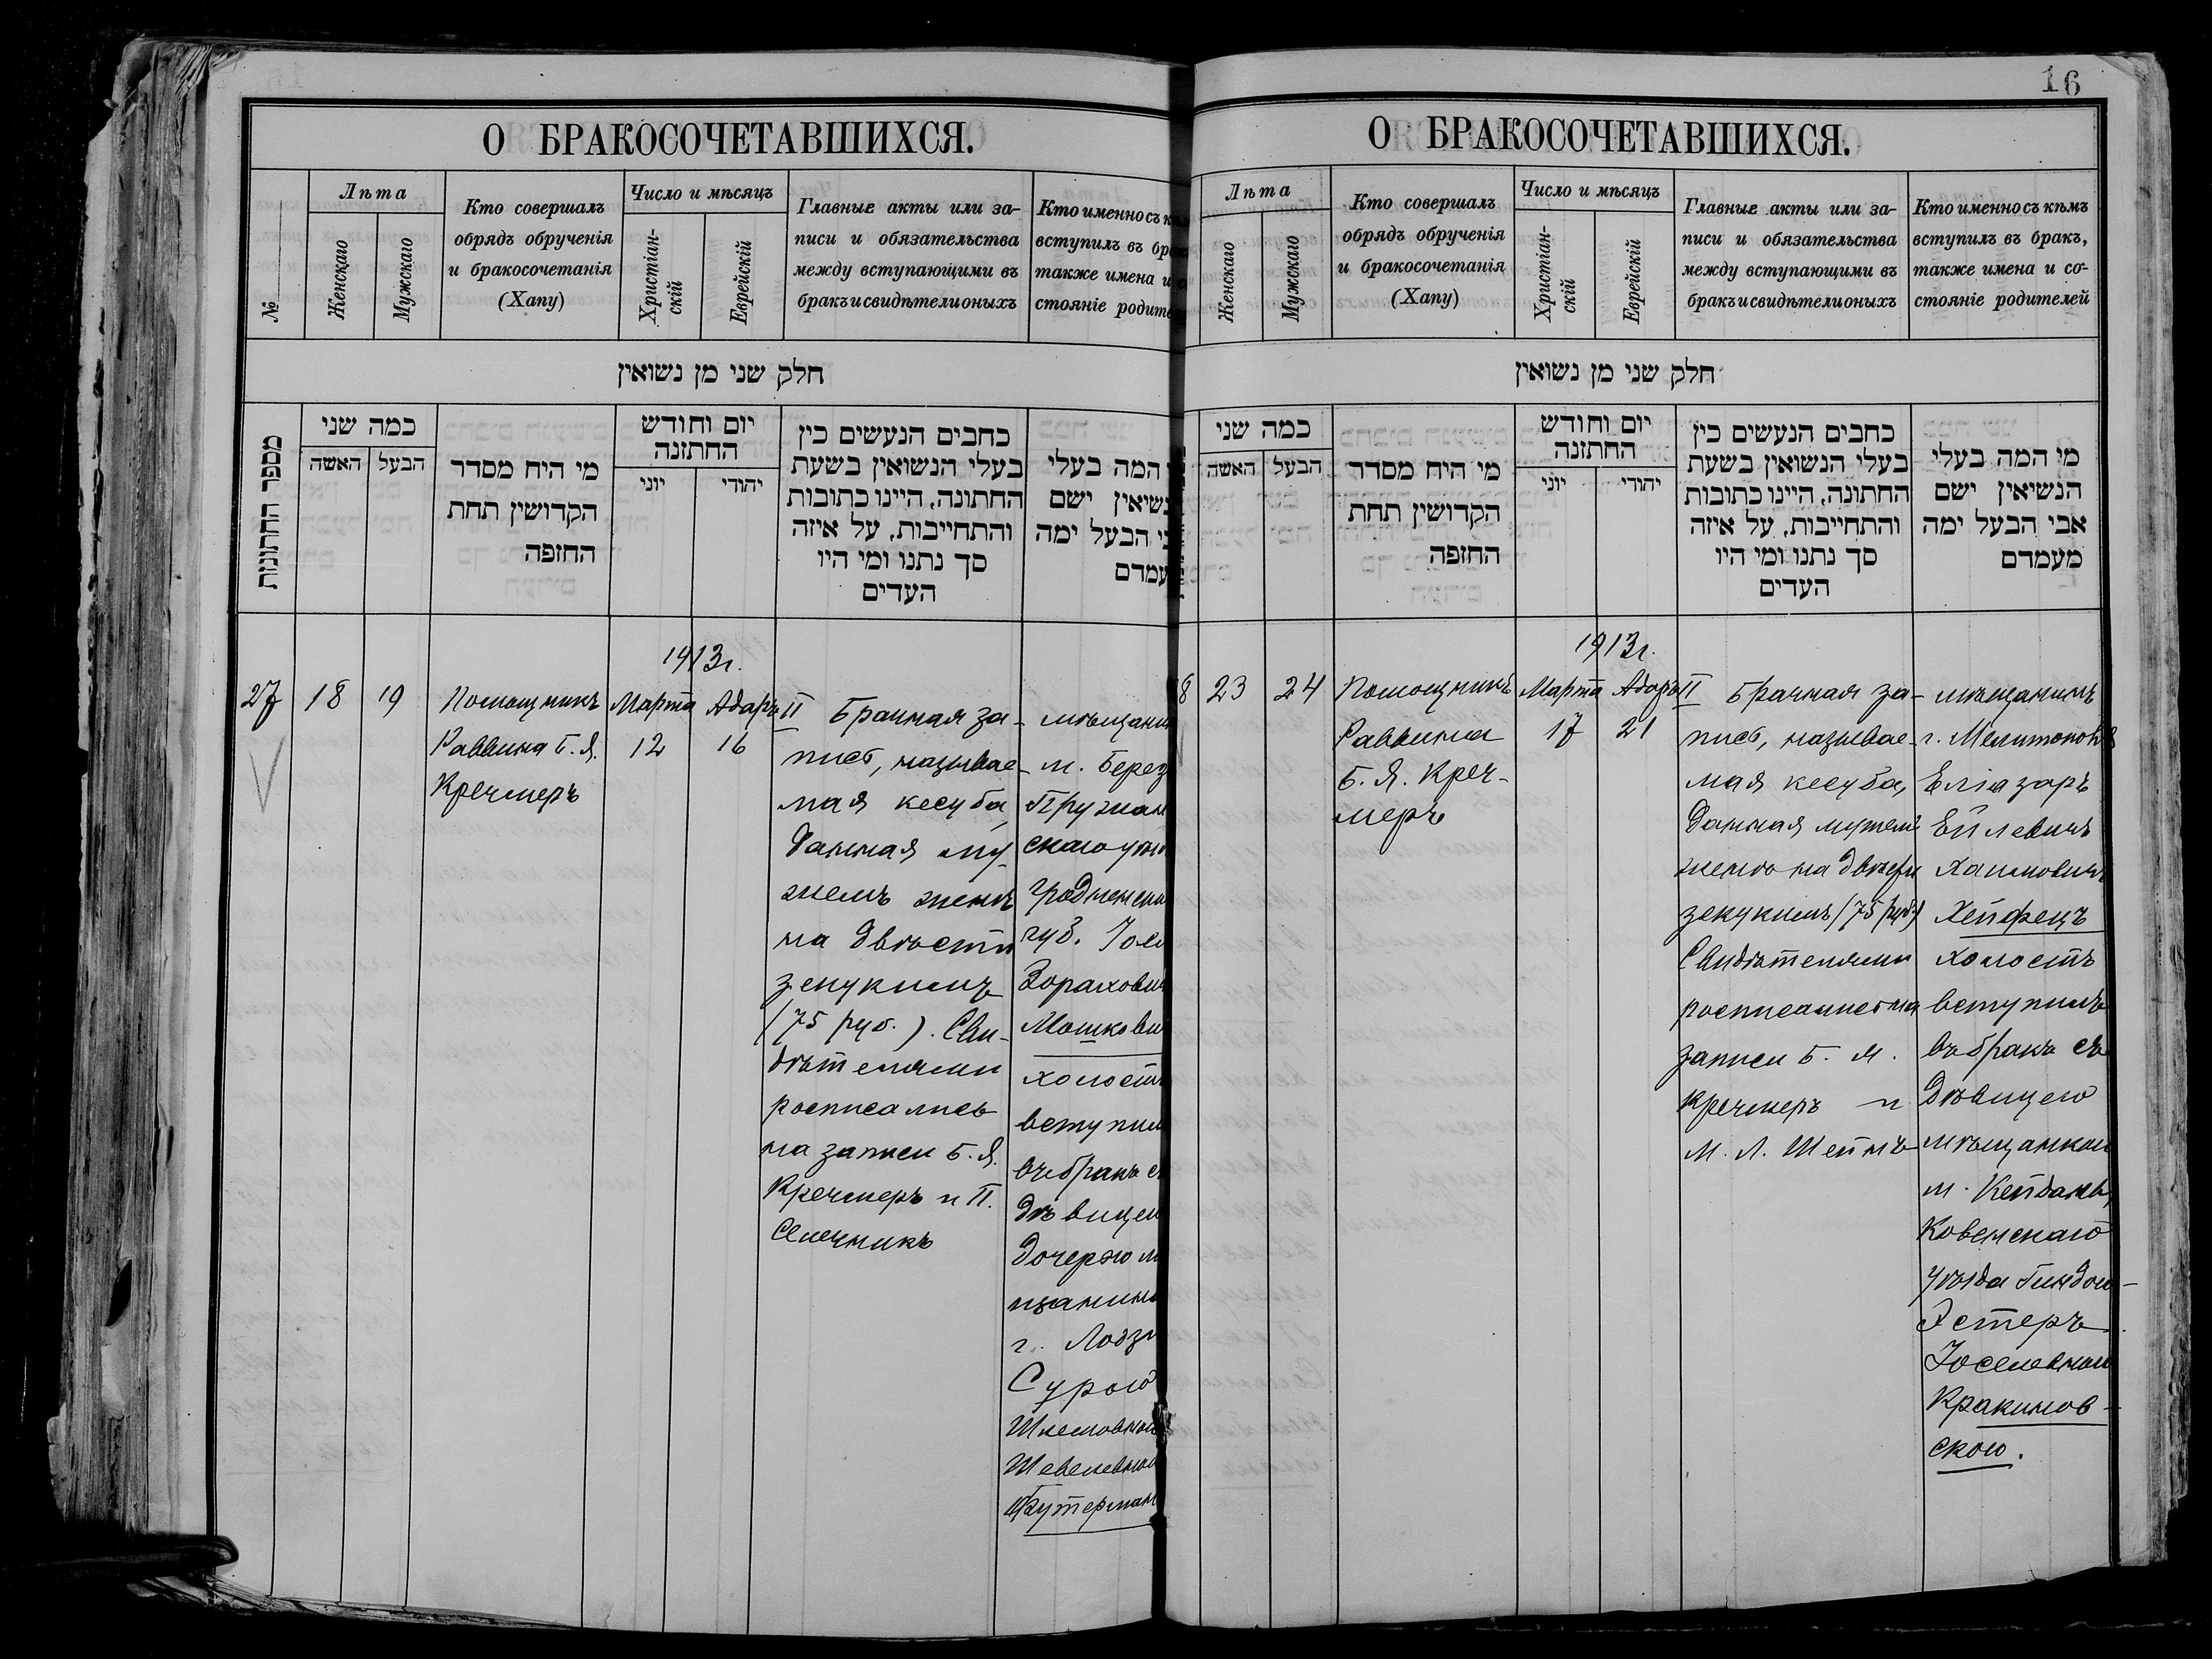 16
О БРАКОСОЧЕТАВШИХСЯ.
№
Лѣта
Женскаго
Мужскаго
Кто совершалъ
обрядъ обрученія
и бракосочетанія
(Хапу)
Число и мѣсяцъ
Христіан-
скій
Еврейскій
Главные акты или за-
писи и обязательства
между вступающими въ
бракъ и свидѣтели оныхъ
Кто именно съ кѣм
вступилъ въ брак
также имена и с
стояніе родите
חלק שני מן נשואין
מספר החתונות
כמה שני
האשה
הבעל
מי היח מסדר
הקדושין תחת
החזפה
יום וחודש
החתזנה
יוני
יהודי
כחבים הנעשים כין
בעלי הנשואין בשעת
החתונה, היינו כתובות
והתחייבות, על איזה
סך נתנו ומי היו
העדים
המה בעלי
נשיאין ישם
י הבעל ימה
עמדם
1913г.
27
18
19
Помощникъ
Раввина Б. Я.
Кречмеръ
Марта
12
Адаръ II
16
Брачная за-
пись, называе-
мая кесуба,
данная му-
жемъ женѣ
на двѣсти
зекукимъ
(75 руб.). Сви-
дѣтелями
росписались
на записи Б. Я.
Кречмеръ и П.
мѣщани
м. Берез
Пружан
скаго уѣз
Гродненск
губ. Іос
Зорахови
Мошкови
холостъ
вступил
въ бракъ с
дѣвицею
дочерью м
щанин
г. Лодзи
Сурою
Шлемовною
Шевелевною
Футерман
О БРАКОСОЧЕТАВШИХСЯ.
Лѣта
Женскаго
Мужскаго
Кто совершалъ
обрядъ обрученія
и бракосочетанія
(Хапу)
Число и мѣсяцъ
Христіан-
скій
Еврейскій
Главные акты или за-
писи и обязательства
между вступающими въ
бракъ и свидѣтели оныхъ
Кто именно съ кѣмъ
вступилъ въ бракъ,
также имена и со-
стояніе родителей
חלק שני מן נשואין
כמה שני
האשה
הבעל
מי היח מסדר
הקדושין תחת
החזפה
יום וחודש
החתזנה
יוני
יהודי
כחבים הנעשים כין
בעלי הנשואין בשעת
החתונה, היינו כתובות
והתחייבות, על איזה
סך נתנו ומי היו
העדים
מי המה בעלי
הנשיאין ישם
אבי הבעל ימה
מעמדם
1913г.
8
23
24
Помощникъ
Раввина
Б. Я. Креч-
меръ
Марта
17
Адаръ II
21
Брачная за-
пись, называе-
мая кесуба,
данная мужемъ
женѣ на двѣсти
зекукимъ (75 руб.)
Свидѣтелями
росписались на
записи Б. Я.
Кречмеръ и
М. Л. Шейнъ
мѣщанинъ
г. Мелитополь
Еліазаръ
Ейлевичъ
Хаимовичъ
Хейфецъ
холостъ
вступилъ
въ бракъ съ
дѣвицею
мѣщанкою
м. Кейданъ,
Ковенскаго
уѣзда Гиндою-
Эстеръ
Іоселевною
Кракинов-
скою.